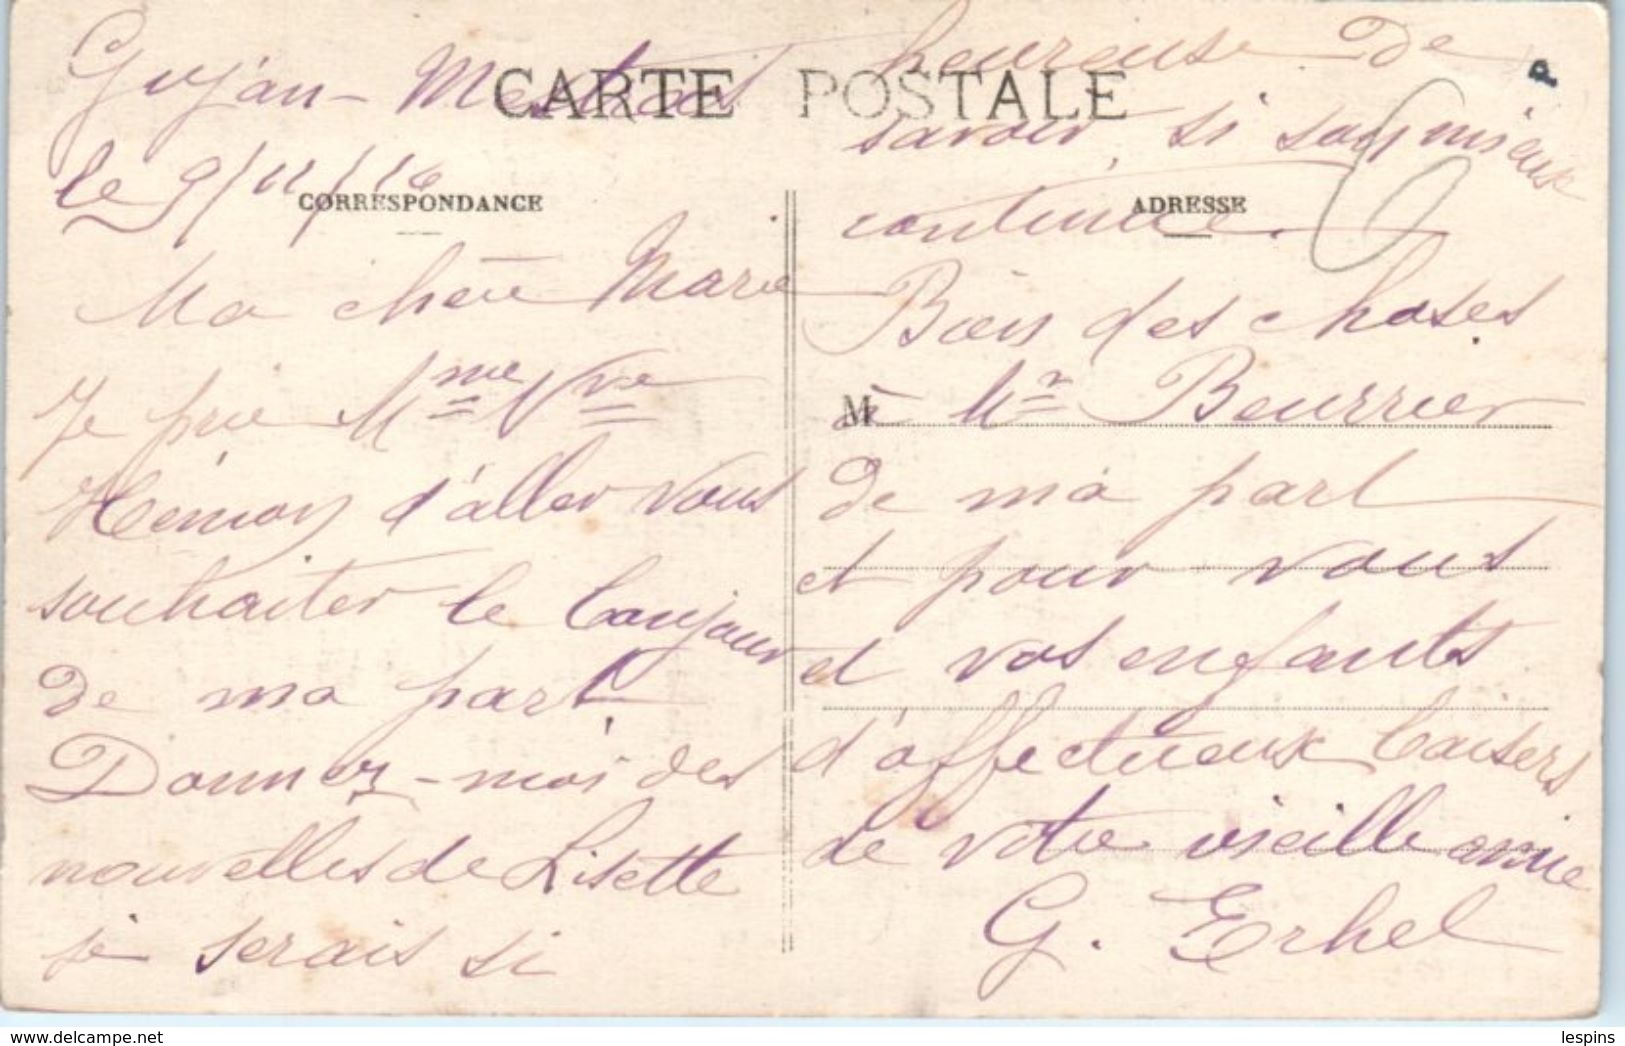 CARTE POSTALE
CORRESPONDANCE
Gujan-Mestras
le 9/11/16
Ma chère Marie
Je prie Mme Vve
Hémon d'aller vous
souhaiter le bonjour
de ma part.
Donnez-moi des
nouvelles de Lisette
je serais si
ADRESSE
heureuse de
savoir si son mieux
continue.
Bien des choses
M
à Mr Beurrier
de ma part
et pour vous
et vos enfants
d'affectueux baisers
de votre vieille amie
G. Erhel
P
lespins
www.delcampe.net